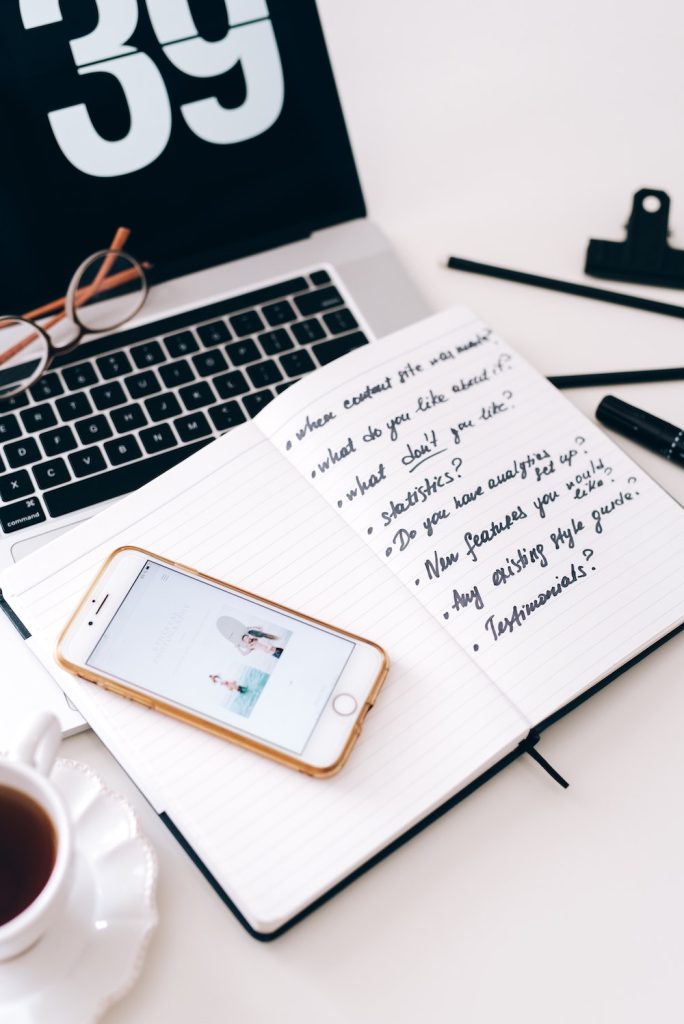 39
• When content site was made?
• What do you like about it?
• What don't you like?
• statistics?
• Do you have analytics set up?
• New features you would like?
• Any existing style guide?
• Testimonials?
command